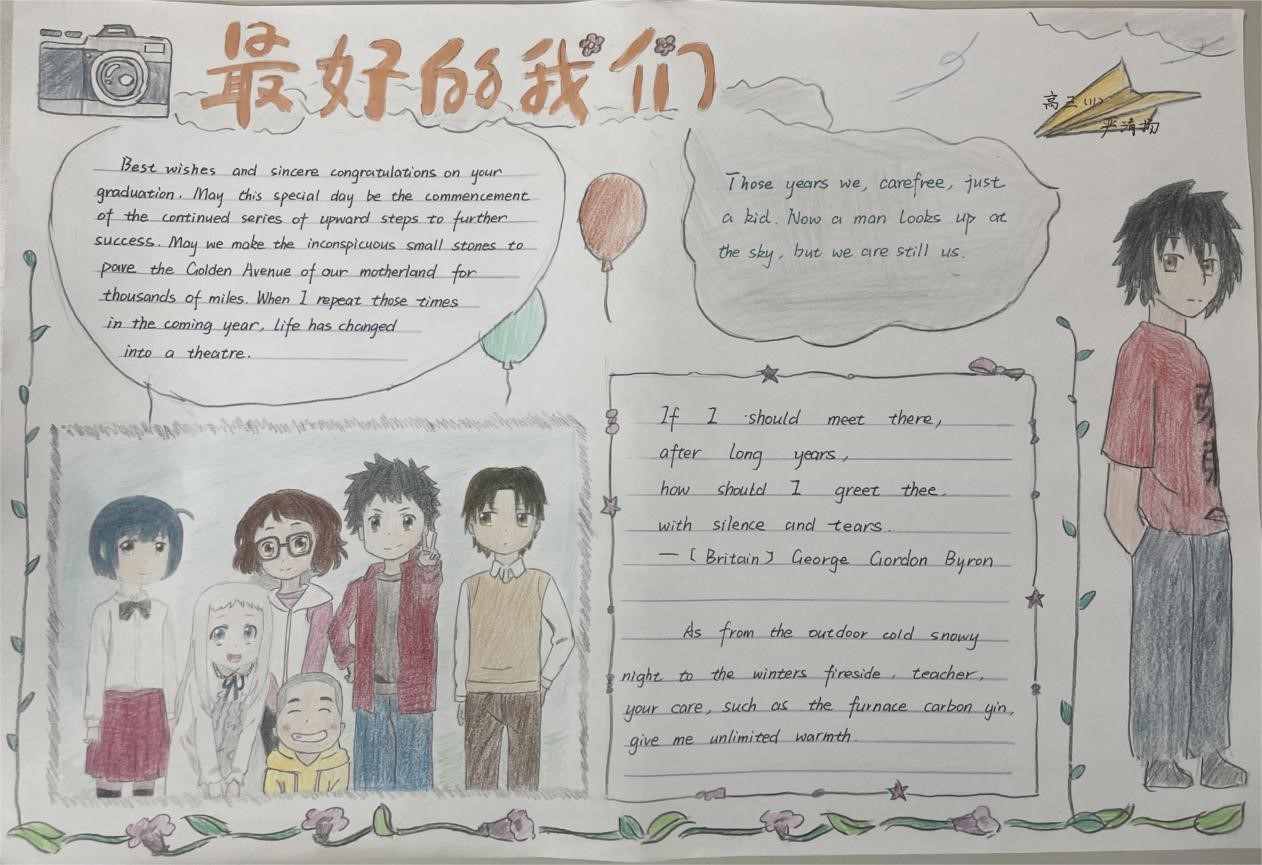 最好的我们
高三(1)
严清扬
Best wishes and sincere congratulations on your
graduation. May this special day be the commencement
of the continued series of upward steps to further
success. May we make the inconspicuous small stones to
pave the Golden Avenue of our motherland for
thousands of miles. When I repeat those times
in the coming year, life has changed
into a theatre.
Those years we, carefree, just
a kid. Now a man looks up at
the sky, but we are still us.
If I should meet there,
after long years,
how should I greet thee.
with silence and tears.
—[Britain] George Gordon Byron
As from the outdoor cold snowy
night to the winters fireside, teacher,
your care, such as the furnace carbon yin,
give me unlimited warmth.